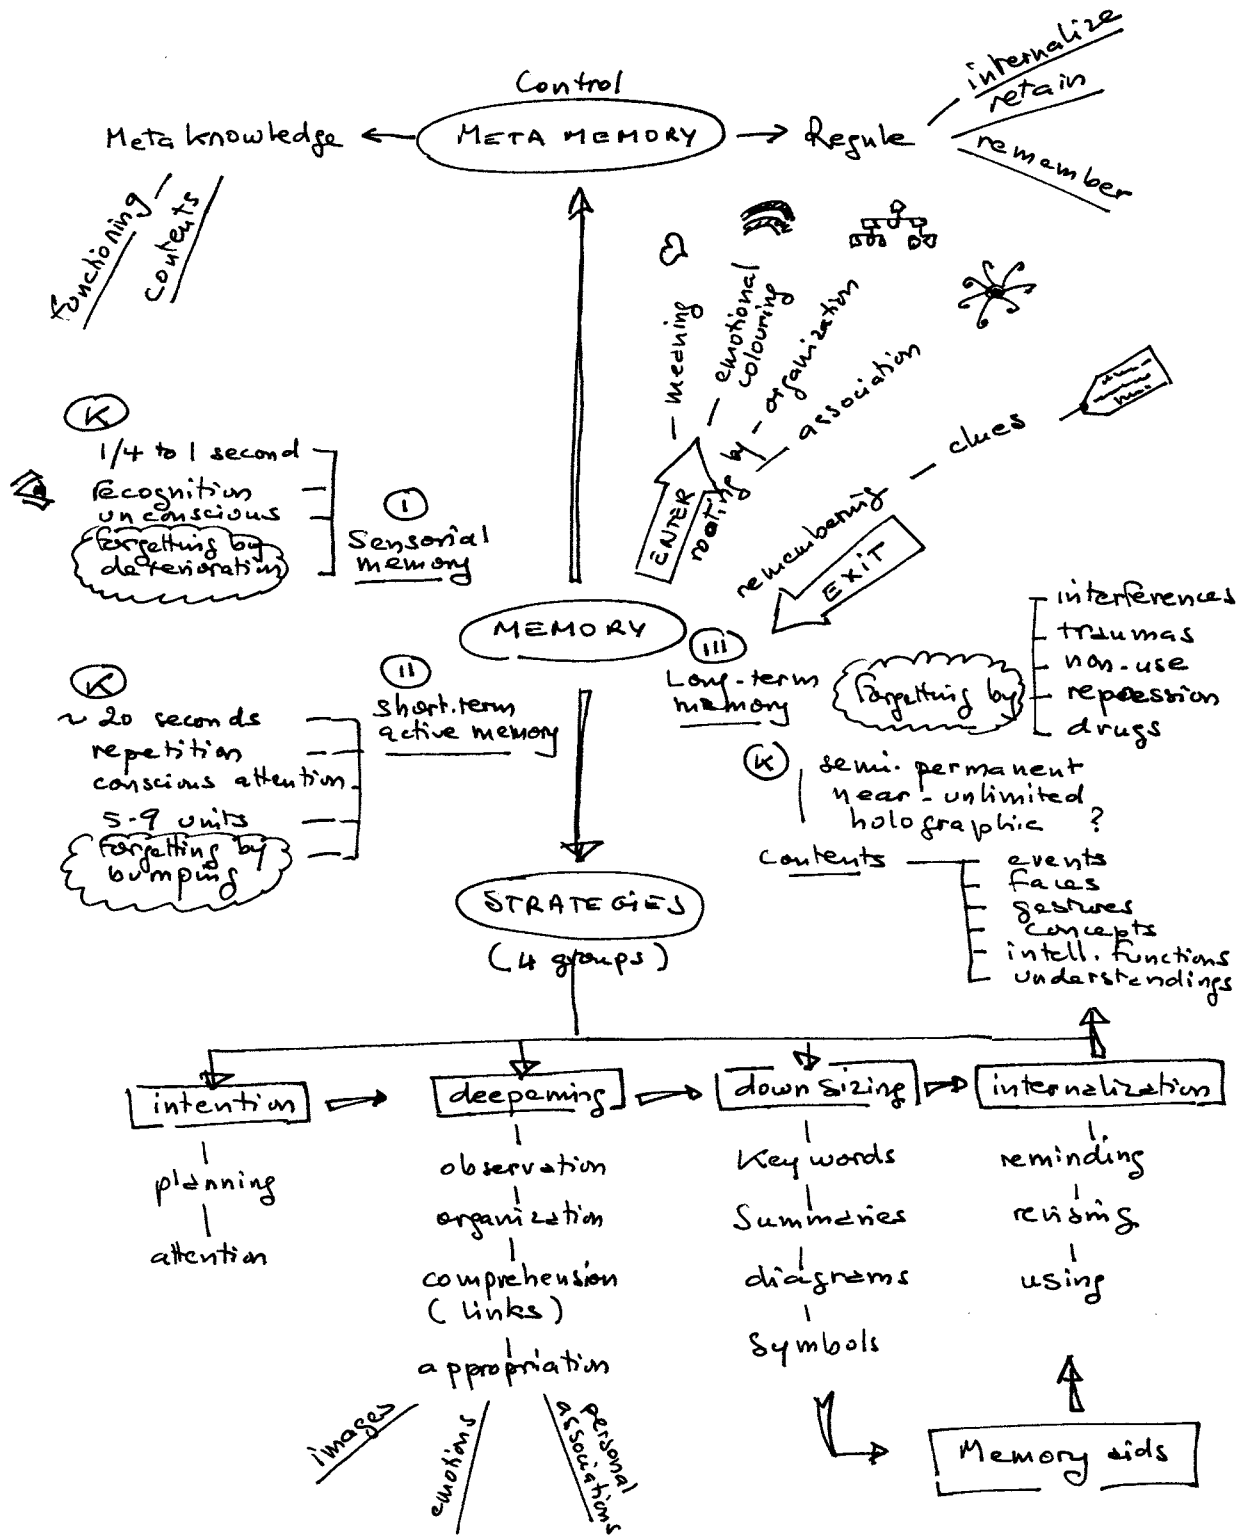 Control
META MEMORY
Meta knowledge
functioning
contents
Regule
internalize
retain
remember
meaning
emotional
colouring
organization
association
ENTER
rooting by
remembering
clues
EXIT
K
1/4 to 1 second
recognition
unconscious
forgetting by
deterioration
I
Sensorial
memory
MEMORY
K
~ 20 seconds
repetition
conscious attention
5-9 units
forgetting by
bumping
II
short.term
active memory
III
Long-term
memory
Forgetting by
interferences
traumas
non-use
repression
drugs
K
semi-permanent
near-unlimited
holographic ?
contents
events
faces
gestures
concepts
intell. functions
understandings
STRATEGIES
(4 groups)
intention
planning
attention
deepening
observation
organization
comprehension
(links)
appropriation
images
emotions
personal
associations
down sizing
Key words
Summaries
diagrams
Symbols
internalization
reminding
revising
using
Memory aids